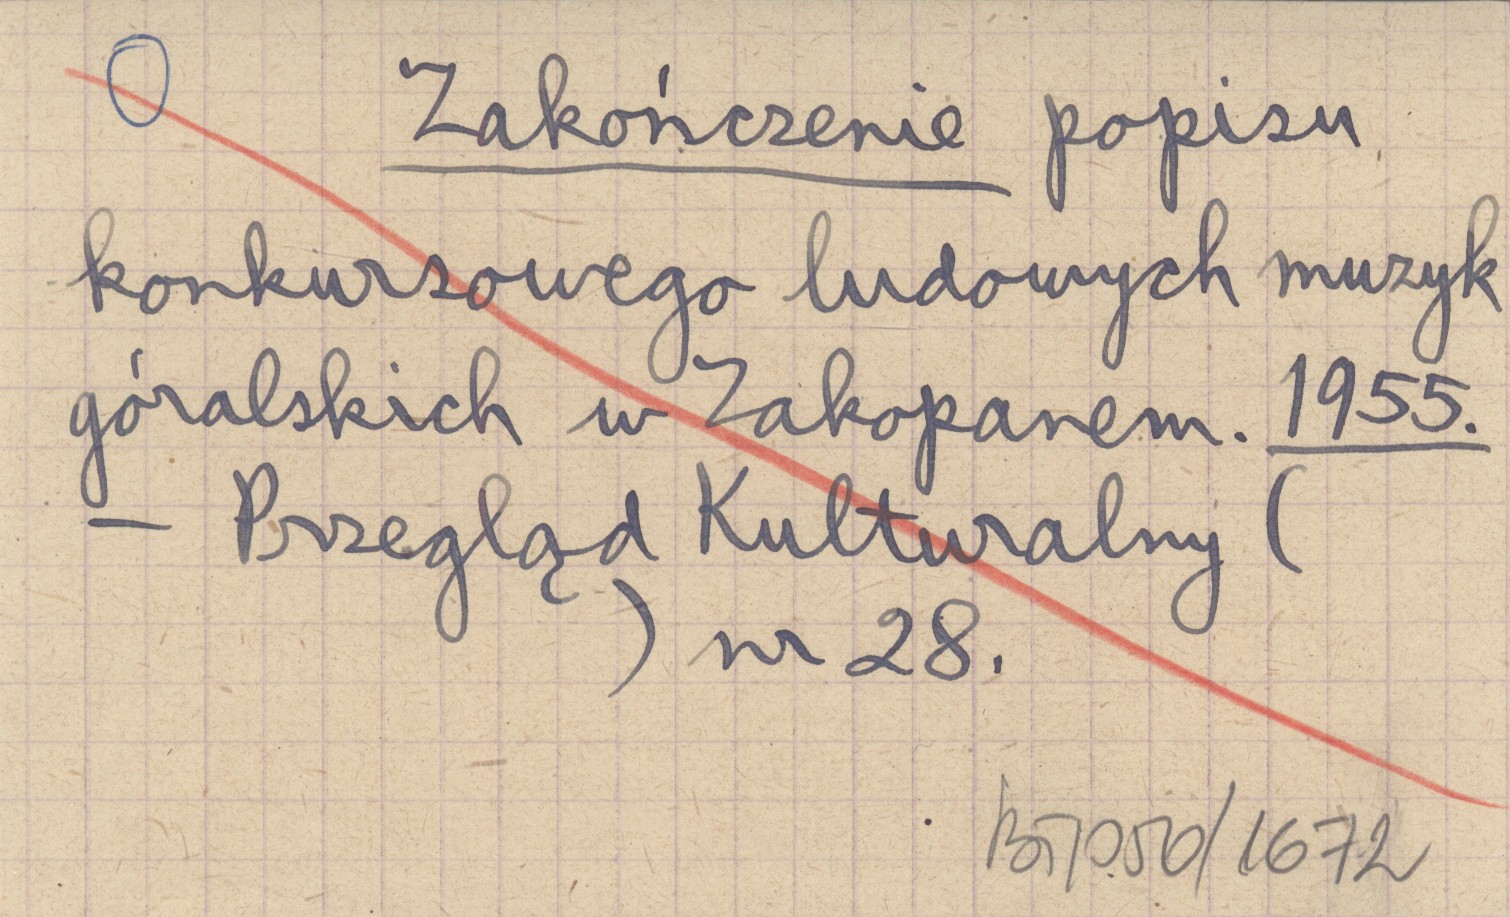 Zakończenie popisu
konkursowego ludowych muzyk
góralskich w Zakopanem. 1955.
– Przegląd Kulturalny (
) nr 28.
/1672